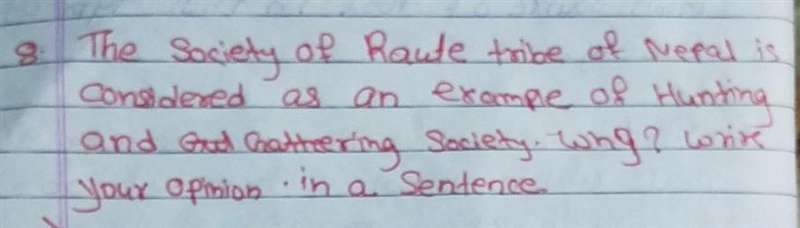 8. The Society of Raute tribe of Nepal is
Considered as an example of Hunting
and Gathering Society. Why? Write
your opinion. in a Sentence.